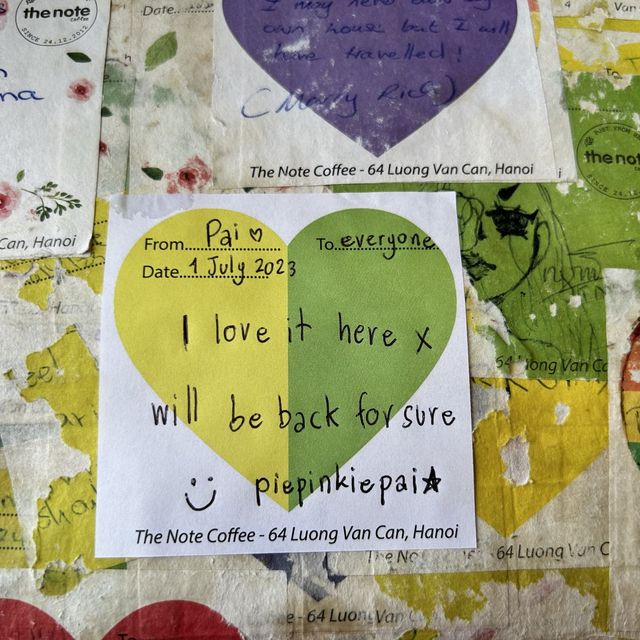 the note
coffee
SINCE 24.12.2012
Date
own house but I will
have travelled!
The Note Coffee - 64 Luong Van Can, Hanoi
the note
Can, Hanoi
From Pai ♡ To everyone
Date 1 July 2023
I love it here x
will be back for sure
☺ piepinkiepai★
The Note Coffee - 64 Luong Van Can, Hanoi
64 Luong Van C
64 Luong Van
To